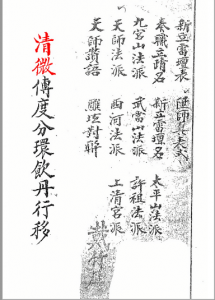 新立雷壇表
奏職立靖名 新立雷壇名 太平山法派
九宮山法派 武當山法派 許祖法派
天師法派 西河法派 上清宮派
天師讚語 對聯
清微傳度分環飲丹行移